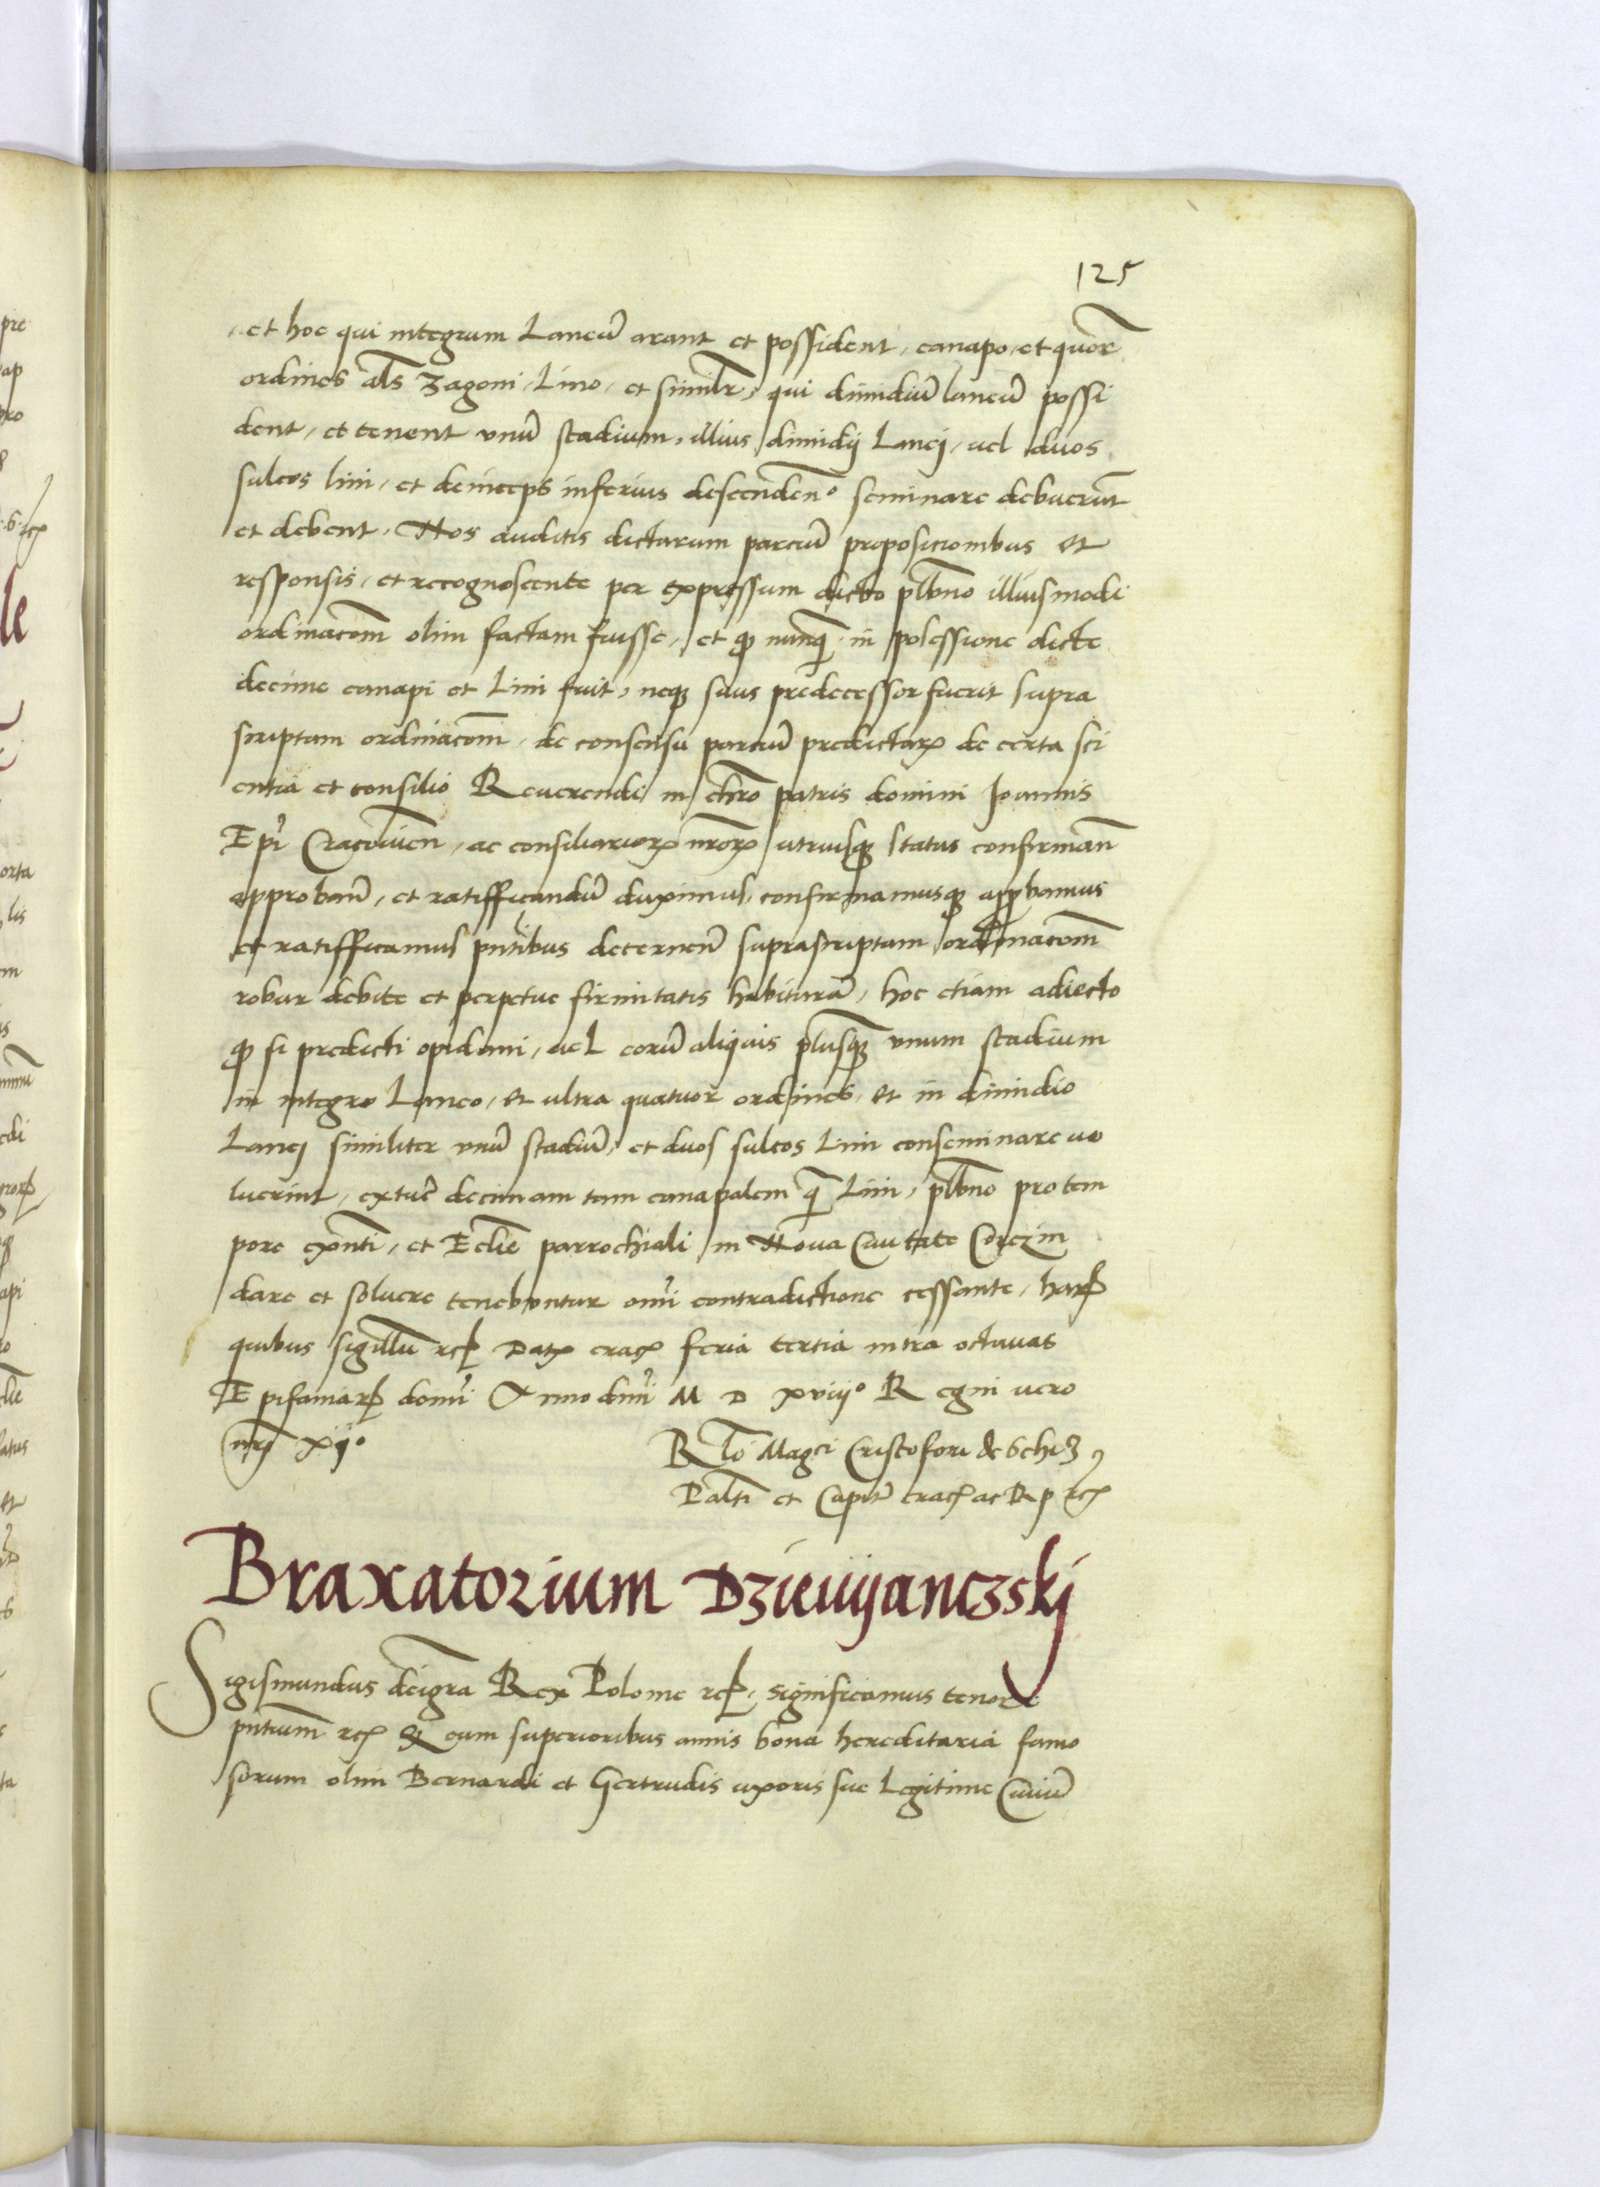 125
et hoc qui integrum Laneum arant et possident, canapo, et quatuor
ordines als Zagoni, Lino, et similr, qui dimidiū laneū possi
dent, et tenent vnū stadium, illius dimidij Lanej, vel duos
sulcos lini, et deinceps inferius descenden° seminare debuerūt
et debent, Nos auditis dictarum parciū proposicionibus et
responsis, et recognoscente per expressum dicto plbno illiusmodi
ordinacom̄ olim factam fuisse, et qp nunq̄ in possessione dicte
decime canapi et Lini fuit, neqz suus predecessor fuerit supra
scriptam ordinacom̄, de consensu parciū predictarz de certa sci
entia et consilio Reuerendi in chro patris domini Joannis
Epi Cracouien̄, ac consiliariorz nrorz utriusqz status confirman̄
approban̄, et ratifficandū duximus, confirmamusqz approbamus
et ratifficamus pntibus decernen̄ suprascriptam ordinacom̄
robur debite et perpetue firmitatis habiturā, hoc etiam adiecto
qp si predicti opidani, vel eorū aliquis plusqz vnum stadium
in integro Laneo, et ultra quatuor ordines, et in dimidio
Lanej similiter vnū stadiū, et duos sulcos Lini conseminare vo
luerint, extūc decimam tam canapalem q̄ Lini, plbno pro tem
pore exn̄ti, et Ecclie parrochiali in Noua Ciuitate Corczin
dare et soluere tenebuntur omi contradictione cessante, harz
quibus sigillū rcz Datz cracz feria tertia intra octauas
Epifaniarz domi Anno dmi M D xviij° Regni vero
nrj xij°
Rlo Magci Cristofori de Schidz
Palti et Capiti cracz ac R p rcz
Braxatorium Dzievijanczskj
Sigismundus dei gra Rex Polonie rcz, significamus tenore
pntium̄ rcz Et cum superioribus annis bona hereditaria famo
sorum olim Bernardi et Gertrudis uxoris sue Legitime Ciuiū